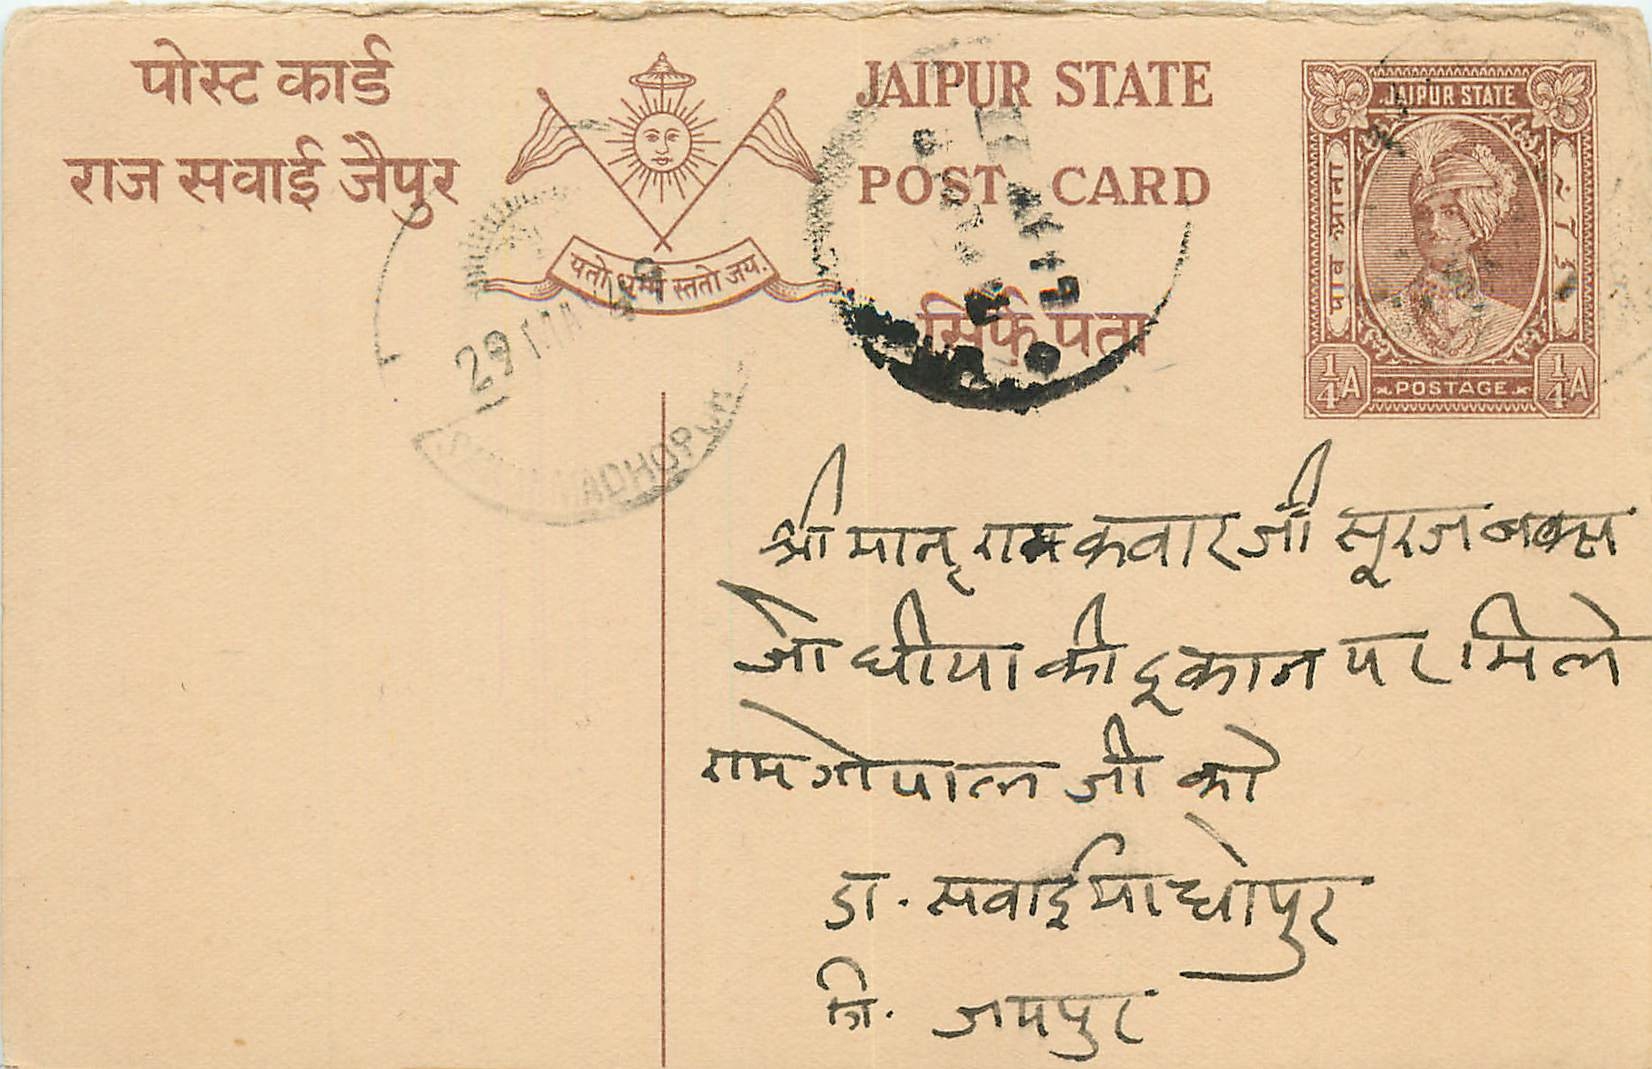 पोस्ट कार्ड
राज सवाई जैपुर
यतो धर्म स्ततो जय.
JAIPUR STATE
POST CARD
सिर्फ़ पता
JAIPUR STATE
पाव आना
1/4 A POSTAGE 1/4 A
29 MADHOPUR
श्रीमान् राम कवार जी सूरज बक्स
जी घीया की दूकान पर मिले
रामगोपाल जी को
डा. सवाईमाधोपुर
जि. जयपुर